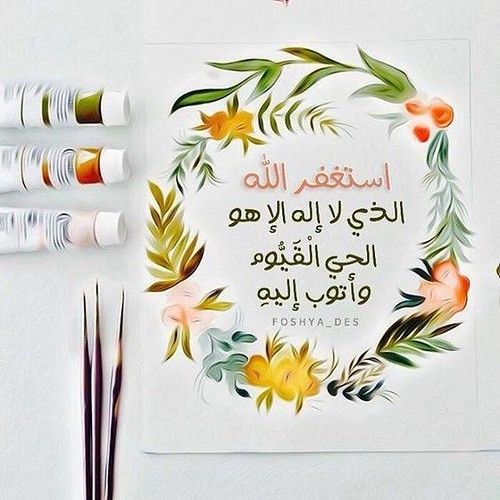 استغفر الله
الذي لا إله إلا هو
الحي الْقَيُّوم
وأتوب إليهِ
FOSHYA_DES